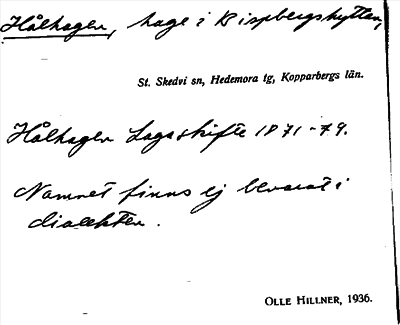 Hålhagen, hage i Bispbergshyttan,
St. Skedvi sn, Hedemora tg, Kopparbergs län.
Hålhagen Lagaskifte 1871-79.
Namnet finns ej bevarat i
dialekten.
OLLE HILLNER, 1936.